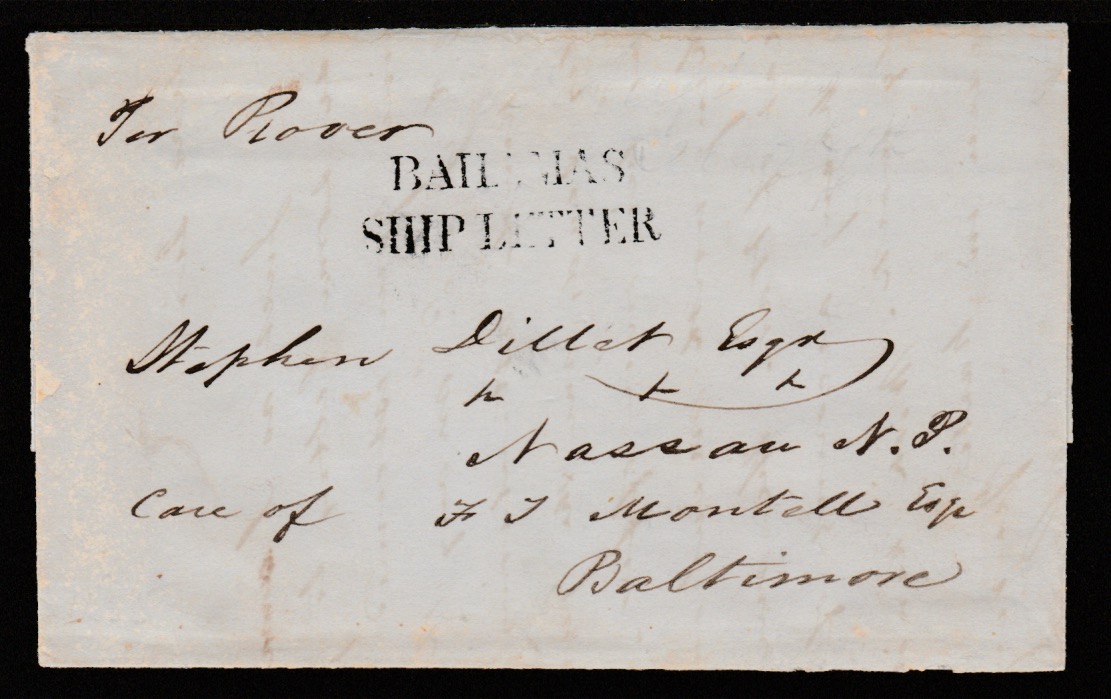 Per Rover
BAHAMAS
SHIP LETTER
Stephen Dillet Esqr
Nassau N.P.
Care of F T Montell Esqr
Baltimore